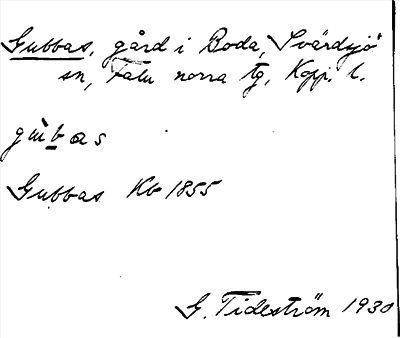 Gubbas, gård i Boda, Svärdsjö
sn, Falu norra tg, Kopp. l.
gu̇bas
Gubbas Kb 1855
G. Tideström 1930